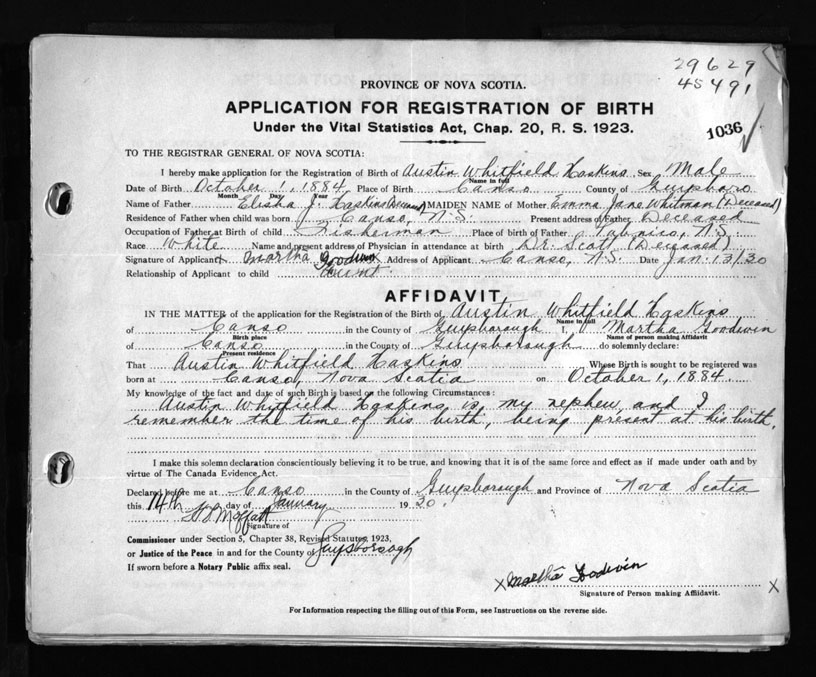 29629
45491
PROVINCE OF NOVA SCOTIA.
APPLICATION FOR REGISTRATION OF BIRTH
Under the Vital Statistics Act, Chap. 20, R. S. 1923.
1036
TO THE REGISTRAR GENERAL OF NOVA SCOTIA:
I hereby make application for the Registration of Birth of Austin Whitfield Haskins Sex Male
Name in full
Date of Birth October 1, 1884 Place of Birth Canso County of Guysboro
Month Day Year
Name of Father Elisha J. Haskins (Deceased) MAIDEN NAME of Mother Emma Jane Whitman (Deceased)
Residence of Father when child was born Canso, N.S. Present address of Father Deceased
Occupation of Father at Birth of child Fisherman Place of birth of Father Tabusico, N.S.
Race White Name and present address of Physician in attendance at birth Dr. Scott (Deceased)
Signature of Applicant x Martha Goodwin Address of Applicant Canso, N.S. Date Jan. 13/30
Relationship of Applicant to child Aunt
AFFIDAVIT
IN THE MATTER of the application for the Registration of the Birth of Austin Whitfield Haskins
Name in full
of Canso in the County of Guysborough I, Martha Goodwin
Birth place Name of person making Affidavit
of Canso in the County of Guysborough do solemnly declare:
Present residence
That Austin Whitfield Haskins Whose Birth is sought to be registered was
born at Canso, Nova Scotia on October 1, 1884.
My knowledge of the fact and date of such Birth is based on the following Circumstances:
Austin Whitfield Haskins is my nephew, and I
remember the time of his birth, being present at his birth.
I make this solemn declaration conscientiously believing it to be true, and knowing that it is of the same force and effect as if made under oath and by
virtue of The Canada Evidence Act.
Declared before me at Canso in the County of Guysborough and Province of Nova Scotia
this 14th day of January 1930.
Moffatt
Signature of
Commissioner under Section 5, Chapter 38, Revised Statutes, 1923,
or Justice of the Peace in and for the County of Guysborough
If sworn before a Notary Public affix seal.
x Martha Goodwin x
Signature of Person making Affidavit.
For Information respecting the filling out of this Form, see Instructions on the reverse side.